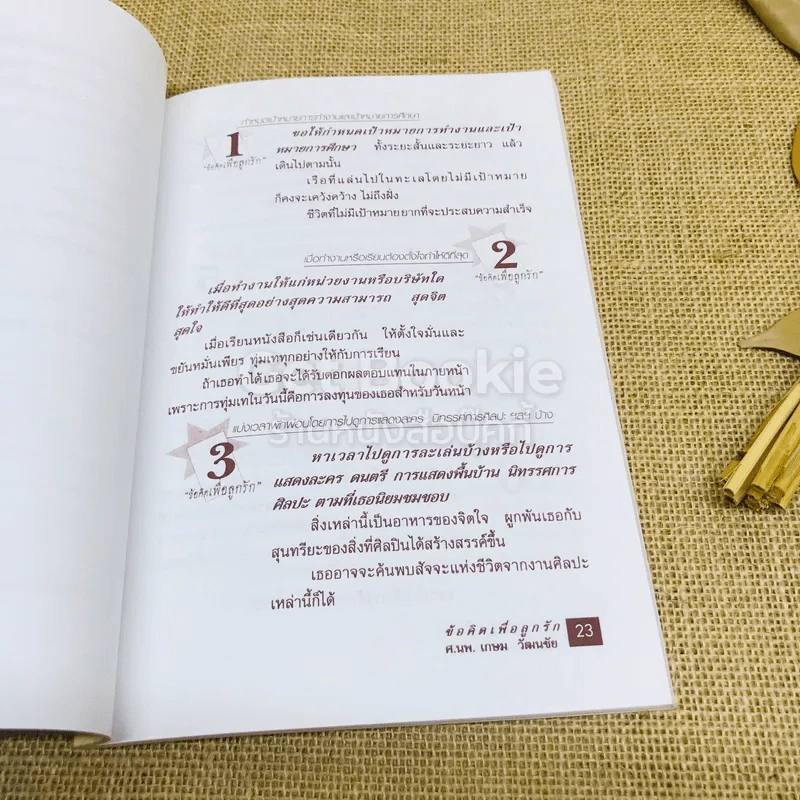 กำหนดเป้าหมายการทำงานและเป้าหมายการศึกษา
1
"ข้อคิดเพื่อลูกรัก"
ขอให้กำหนดเป้าหมายการทำงานและเป้า
หมายการศึกษา ทั้งระยะสั้นและระยะยาว แล้ว
เดินไปตามนั้น
เรือที่แล่นไปในทะเลโดยไม่มีเป้าหมาย
ก็คงจะเคว้งคว้าง ไม่ถึงฝั่ง
ชีวิตที่ไม่มีเป้าหมายยากที่จะประสบความสำเร็จ
เมื่อทำงานหรือเรียนต้องตั้งใจทำให้ดีที่สุด
2
"ข้อคิดเพื่อลูกรัก"
เมื่อทำงานให้แก่หน่วยงานหรือบริษัทใด
ให้ทำให้ดีที่สุดอย่างสุดความสามารถ สุดจิต
สุดใจ
เมื่อเรียนหนังสือก็เช่นเดียวกัน ให้ตั้งใจมั่นและ
ขยันหมั่นเพียร ทุ่มเททุกอย่างให้กับการเรียน
ถ้าเธอทำได้ เธอจะได้รับดอกผลตอบแทนในภายหน้า
เพราะการทุ่มเทในวันนี้คือการลงทุนของเธอสำหรับวันหน้า
Best Bookie
ร้านหนังสือบุคกี้
แบ่งเวลาพักผ่อนโดยการไปดูการแสดงละคร นิทรรศการศิลปะ ฯลฯ บ้าง
3
"ข้อคิดเพื่อลูกรัก"
หาเวลาไปดูการละเล่นบ้างหรือไปดูการ
แสดงละคร ดนตรี การแสดงพื้นบ้าน นิทรรศการ
ศิลปะ ตามที่เธอนิยมชมชอบ
สิ่งเหล่านี้เป็นอาหารของจิตใจ ผูกพันเธอกับ
สุนทรียะของสิ่งที่ศิลปินได้สร้างสรรค์ขึ้น
เธออาจจะค้นพบสัจจะแห่งชีวิตจากงานศิลปะ
เหล่านี้ก็ได้
ข้อคิดเพื่อลูกรัก
ศ.นพ. เกษม วัฒนชัย
23